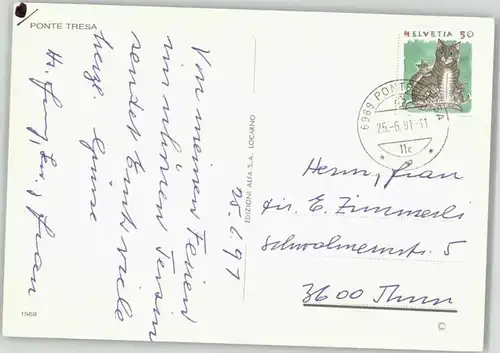 PONTE TRESA
Von meinen Ferien
im schönen Tessin
sendet Euch viele
herzl. Grüsse
25.6.91
EDIZIONI ALFA S.A. LOCARNO
1569
HELVETIA 50
6989 PONTE TRESA
25.-6.91-11
11c
Herrn, Frau
E. Zimmerli
Schwalmernstr. 5
3600 Thun
©